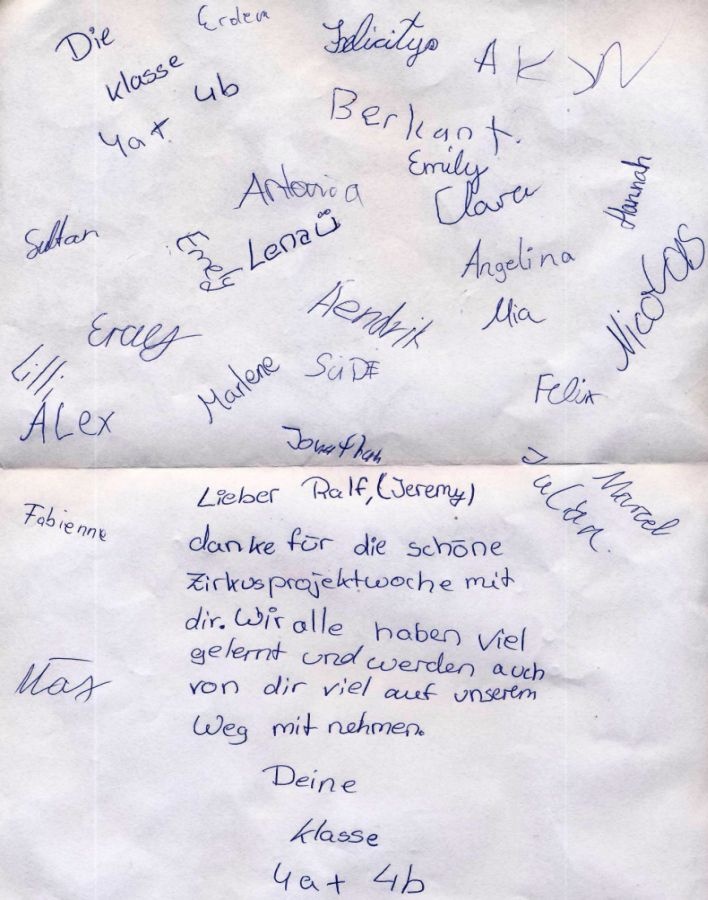 Die
Klasse
4a+ 4b
Erdem
Felicitys
Berkant.
Emily
Antonia
Clara
Hannah
Sultan
Emely
Lenaü
Angelina
Nicolas
Hendrik
Mia
Eray
Lilli
Marlene
SUDE
Felix
ALex
Jonathan
Julian.
Marcel
Fabienne
Lieber Ralf, (Jeremy)
danke für die schöne
Zirkusprojektwoche mit
dir. Wir alle haben viel
gelernt und werden auch
von dir viel auf unserem
Weg mit nehmen.
Max
Deine
Klasse
4a+ 4b